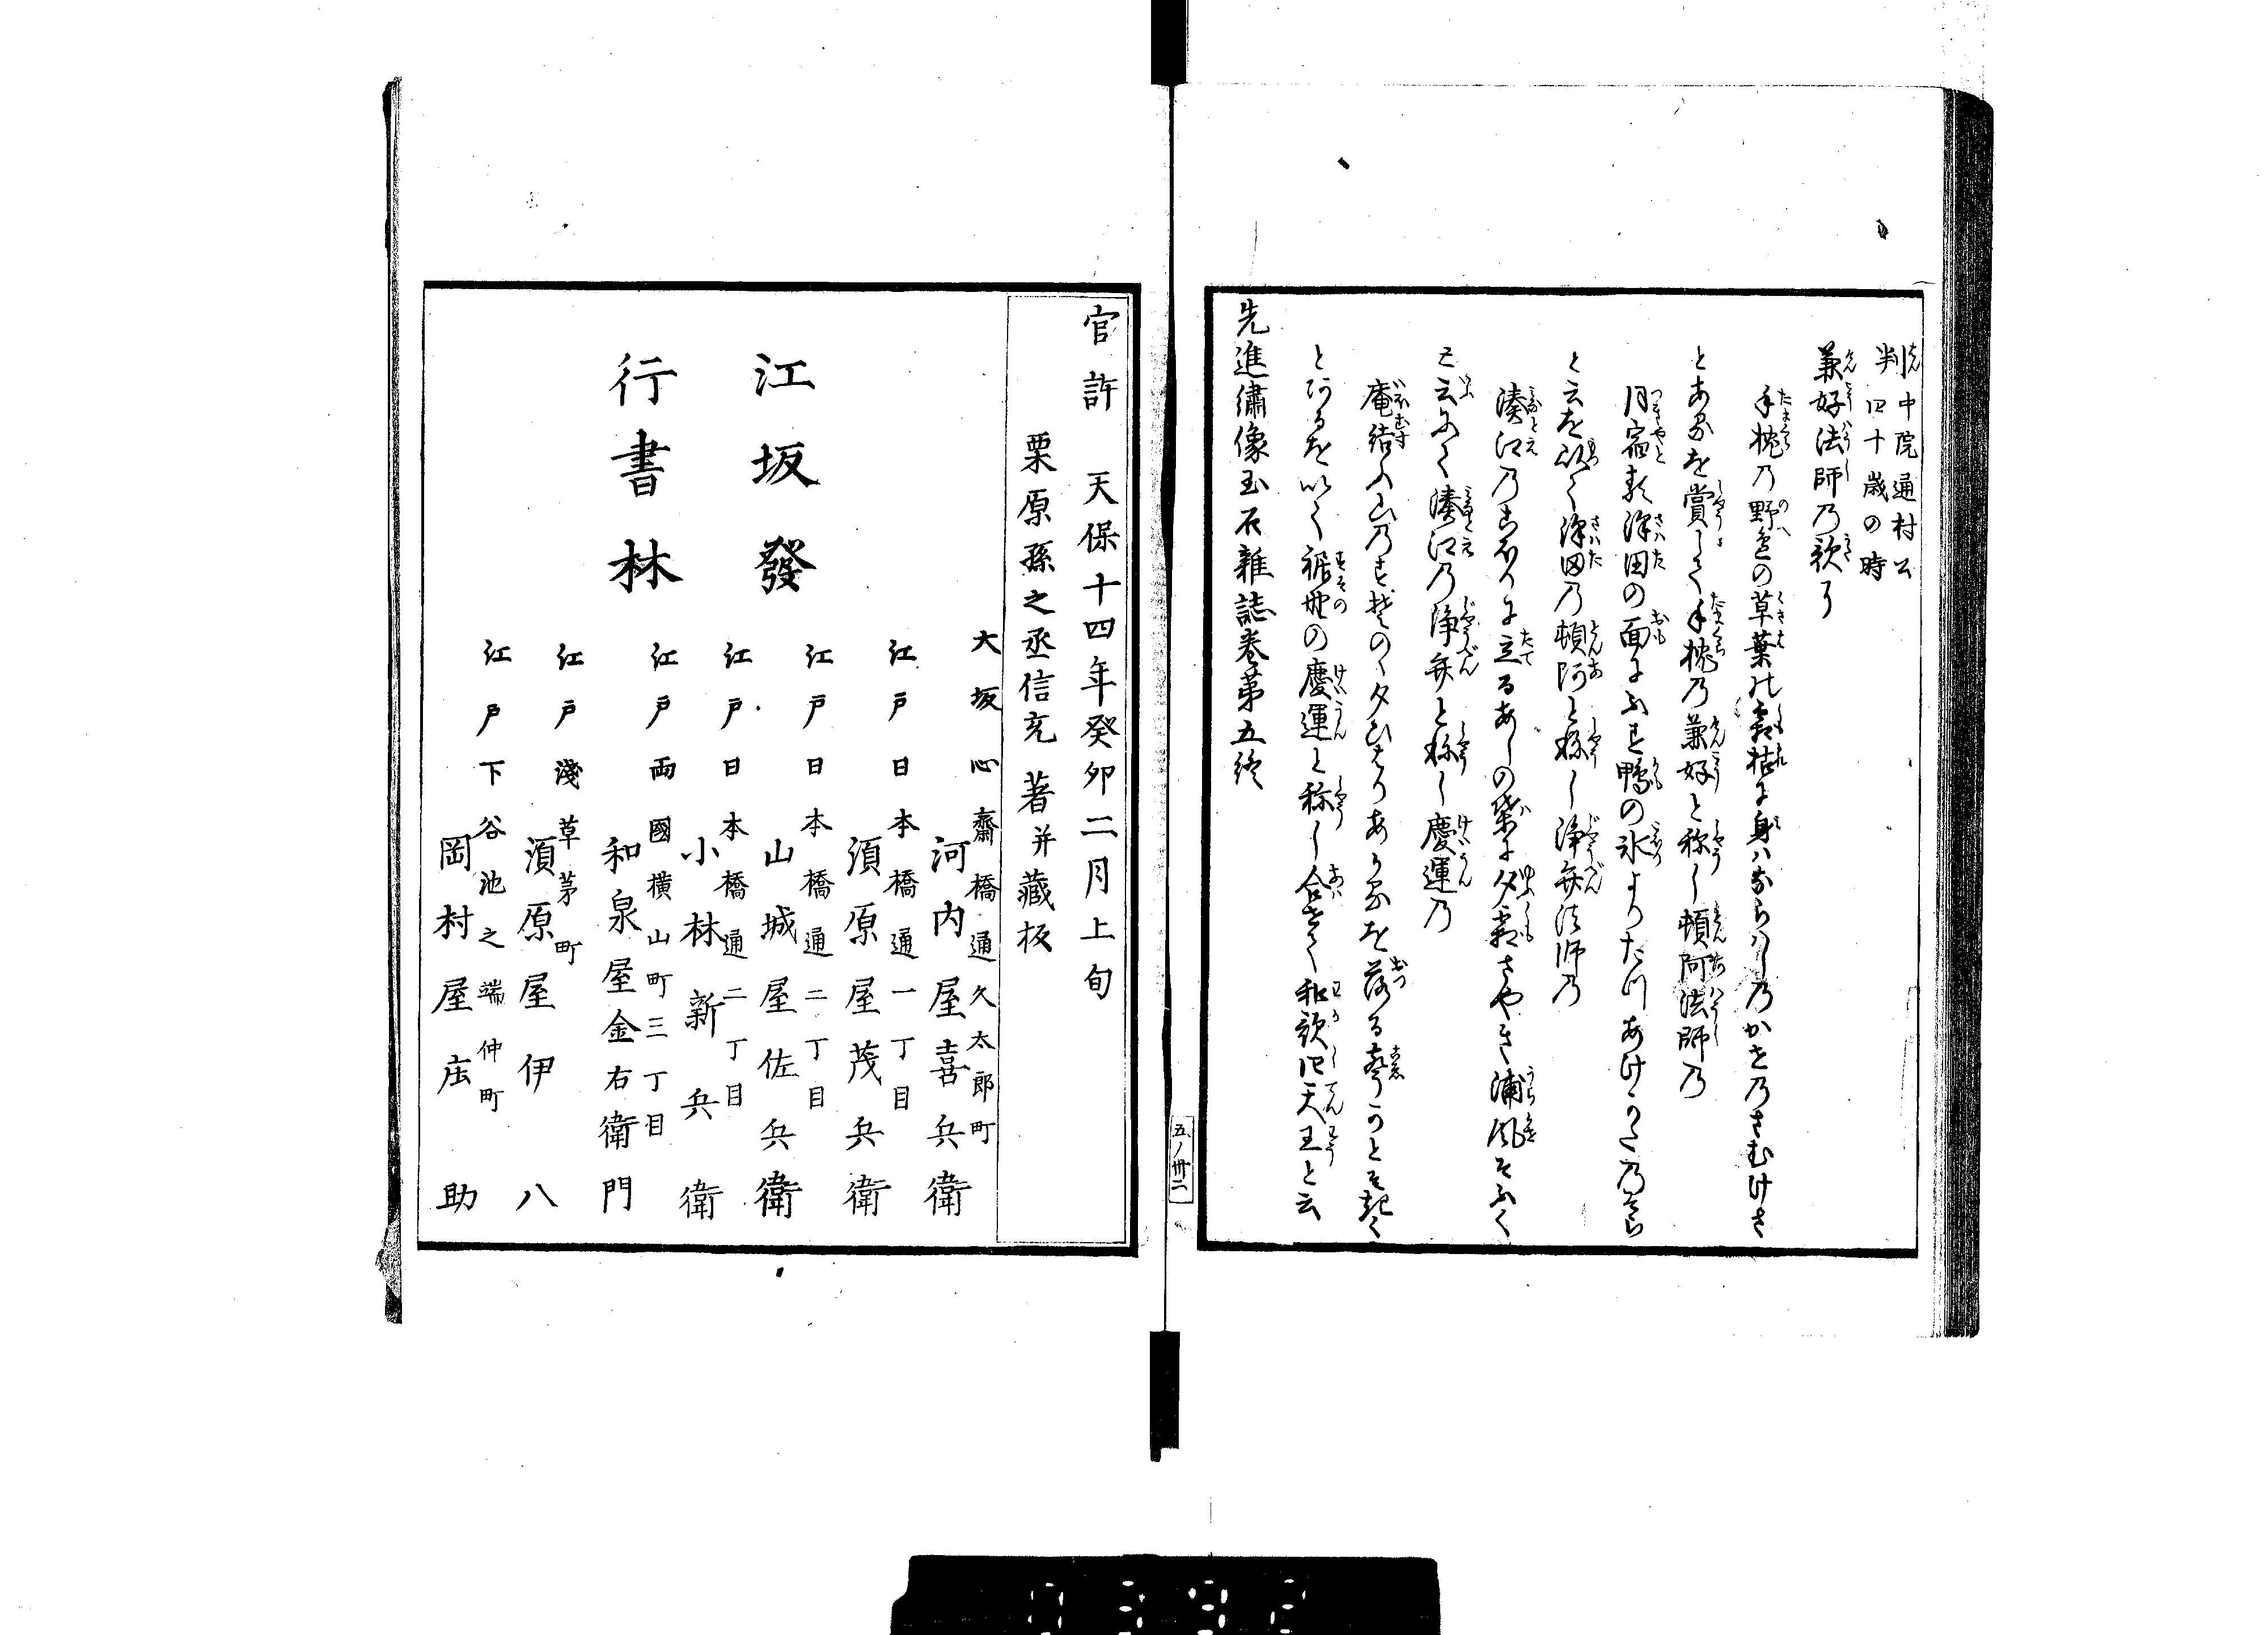 判 中院通村公
四十歳の時
兼好法師乃歌に
手枕乃野邊の草葉の霜枯に身ハならハし乃かせ乃さむけさ
とあるを賞して手枕乃兼好と称し頓阿法師乃
月宿る澤田の面にふす鴨の氷よりたつあけかた乃そら
と云を以て澤田乃頓阿と称し浄弁法師乃
湊江乃こほりに立るあしの葉に夕霜さやき浦風そふく
と云にて湊江乃浄弁と称し慶運乃
庵結ふ山乃すそのゝ夕ひはりあかるを落る聲かとそきく
とあるを以て裾野の慶運と称し合せて和歌四天王と云
先進繡像玉石雜誌巻第五終
五ノ卅二
官許 天保十四年癸卯二月上旬
栗原孫之丞信充 著并藏板
江坂發
行書林
大坂心齋橋通久太郎町
河内屋喜兵衛
江戸日本橋通一丁目
須原屋茂兵衛
江戸日本橋通二丁目
山城屋佐兵衛
江戸日本橋通二丁目
小林新兵衛
江戸両國横山町三丁目
和泉屋金右衛門
江戸淺草茅町
須原屋伊八
江戸下谷池之端仲町
岡村屋庄助